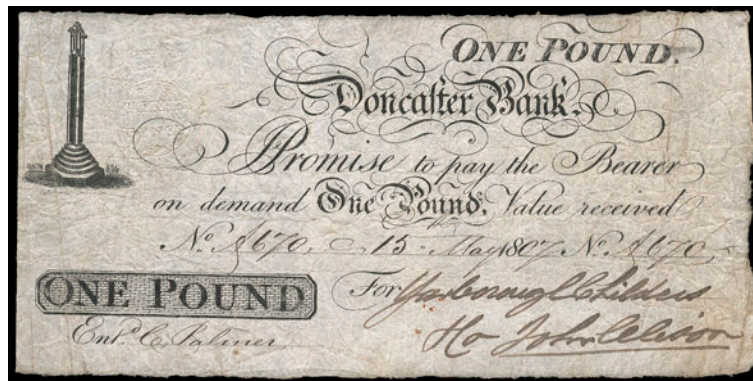 ONE POUND.
Doncaſter Bank.
Promise to pay the Bearer
on demand One Pound, Value received
Nº A670, 15 May 1807 Nº A670,
ONE POUND For Yarborough Childers
Entᵈ C Palmer Co John